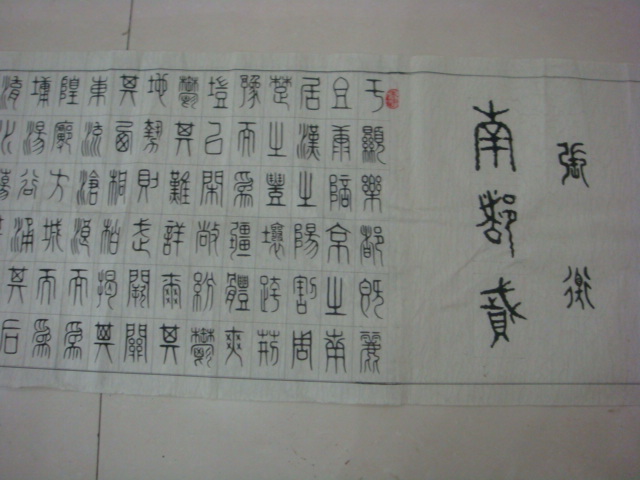 南都賦
張衡
于顯樂都既麗
且康陪京之南
居漢之陽割周
楚之豐壤跨荊
豫而爲疆體爽
塏已閑敞紛鬱
鬱其難詳爾其
地勢則武闕關
其西桐柏揭其
東流滄浪而爲
隍廓方城而爲
墉湯谷涌其后
淯水蕩